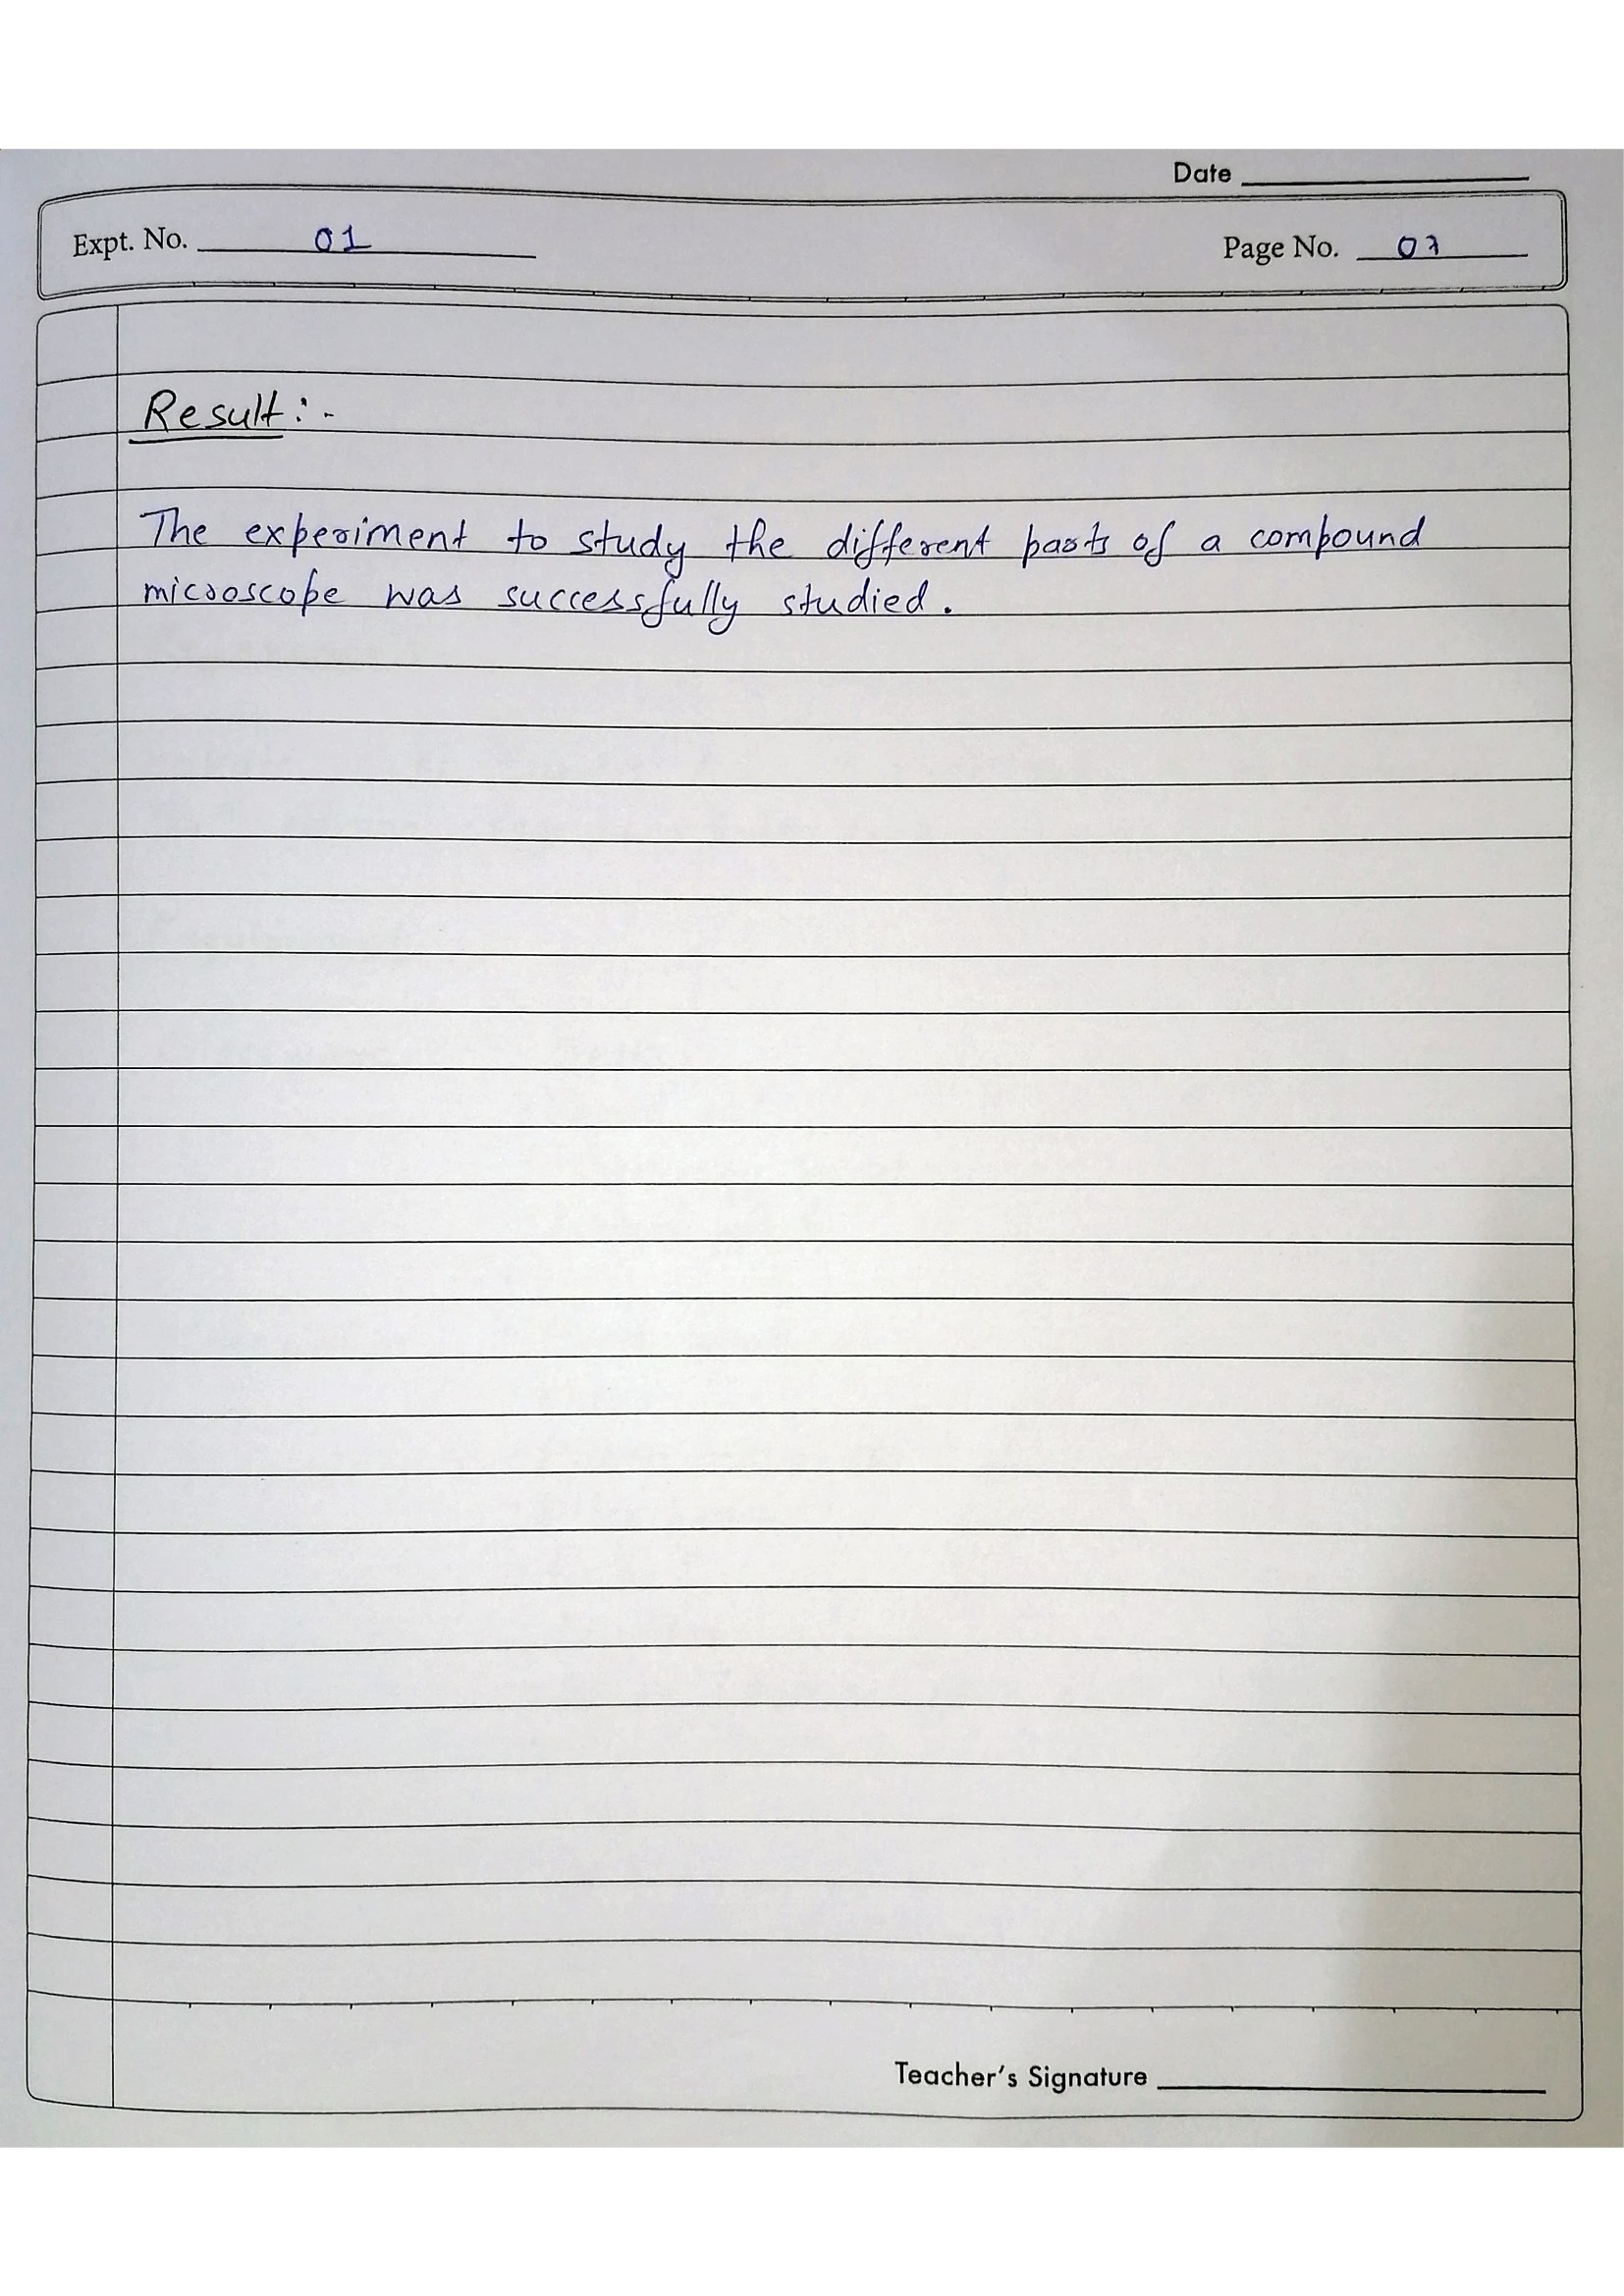 Date
Expt. No. 01
Page No. 07
Result :-
The experiment to study the different parts of a compound
microscope was successfully studied.
Teacher's Signature